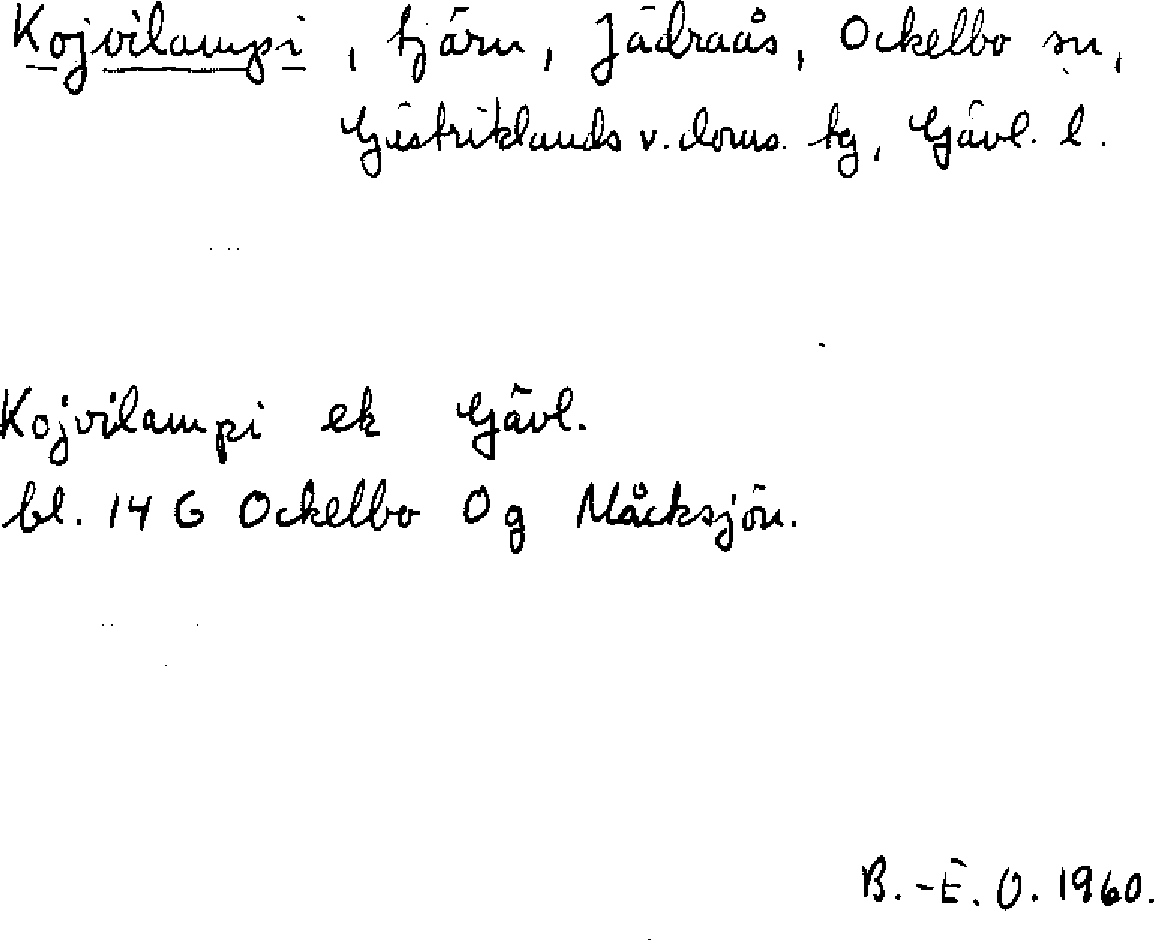 Kojvilampi, tjärn, Jädraås, Ockelbo sn,
Gästriklands v. doms. tg, Gävl. l.
Kojvilampi ek Gävl.
bl. 14 G Ockelbo 0 g Måcksjön.
B.-E. O. 1960.